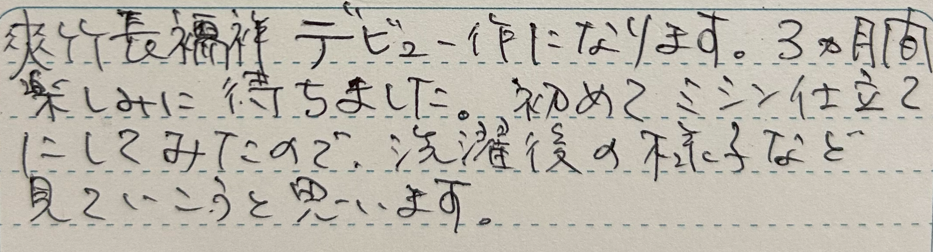 爽竹長襦袢 デビュー作になります。3ヵ月間
楽しみに待ちました。初めてミシン仕立て
にしてみたので、洗濯後の様子など
見ていこうと思います。